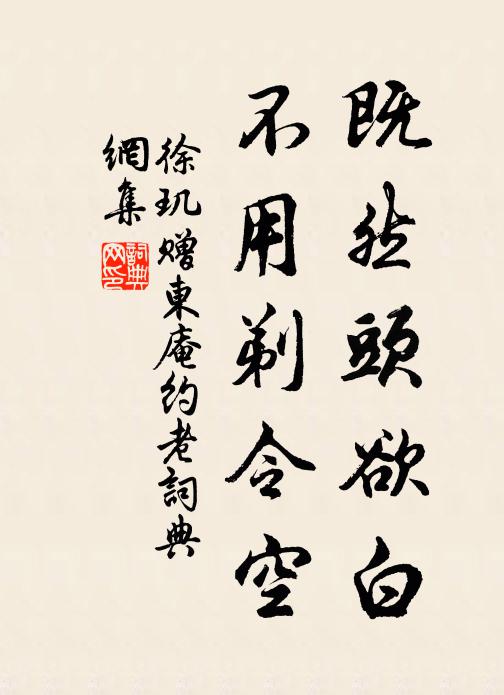 既然頭欲白
不用剃令空
徐玑赠東庵约老詞典
網集
詞典
网印